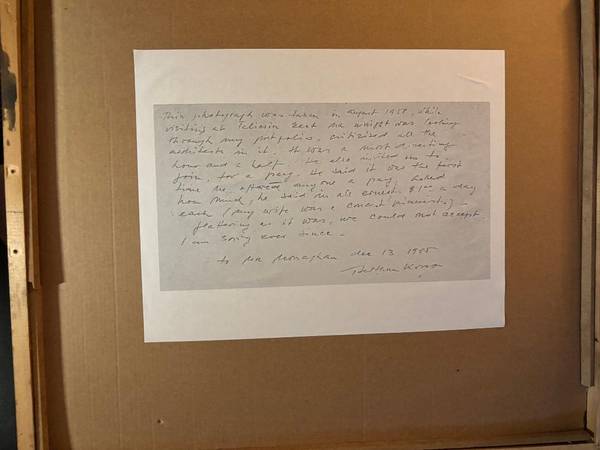 This photograph was taken in August while
visiting at Teliesin East Mr Wright was looking
through my portfolio, critizised all the
architects in it. It was a most
hour and a half. He also invited us to
join, for a pay. He said it was the first
time he offered anyone a pay. Asked
how much, he said in all ernest: a day
each (my wife was a concert pianist.) –
flattering as it was, we could not accept
I am sorry ever since –
to Mr Monaghan dec 13 1985